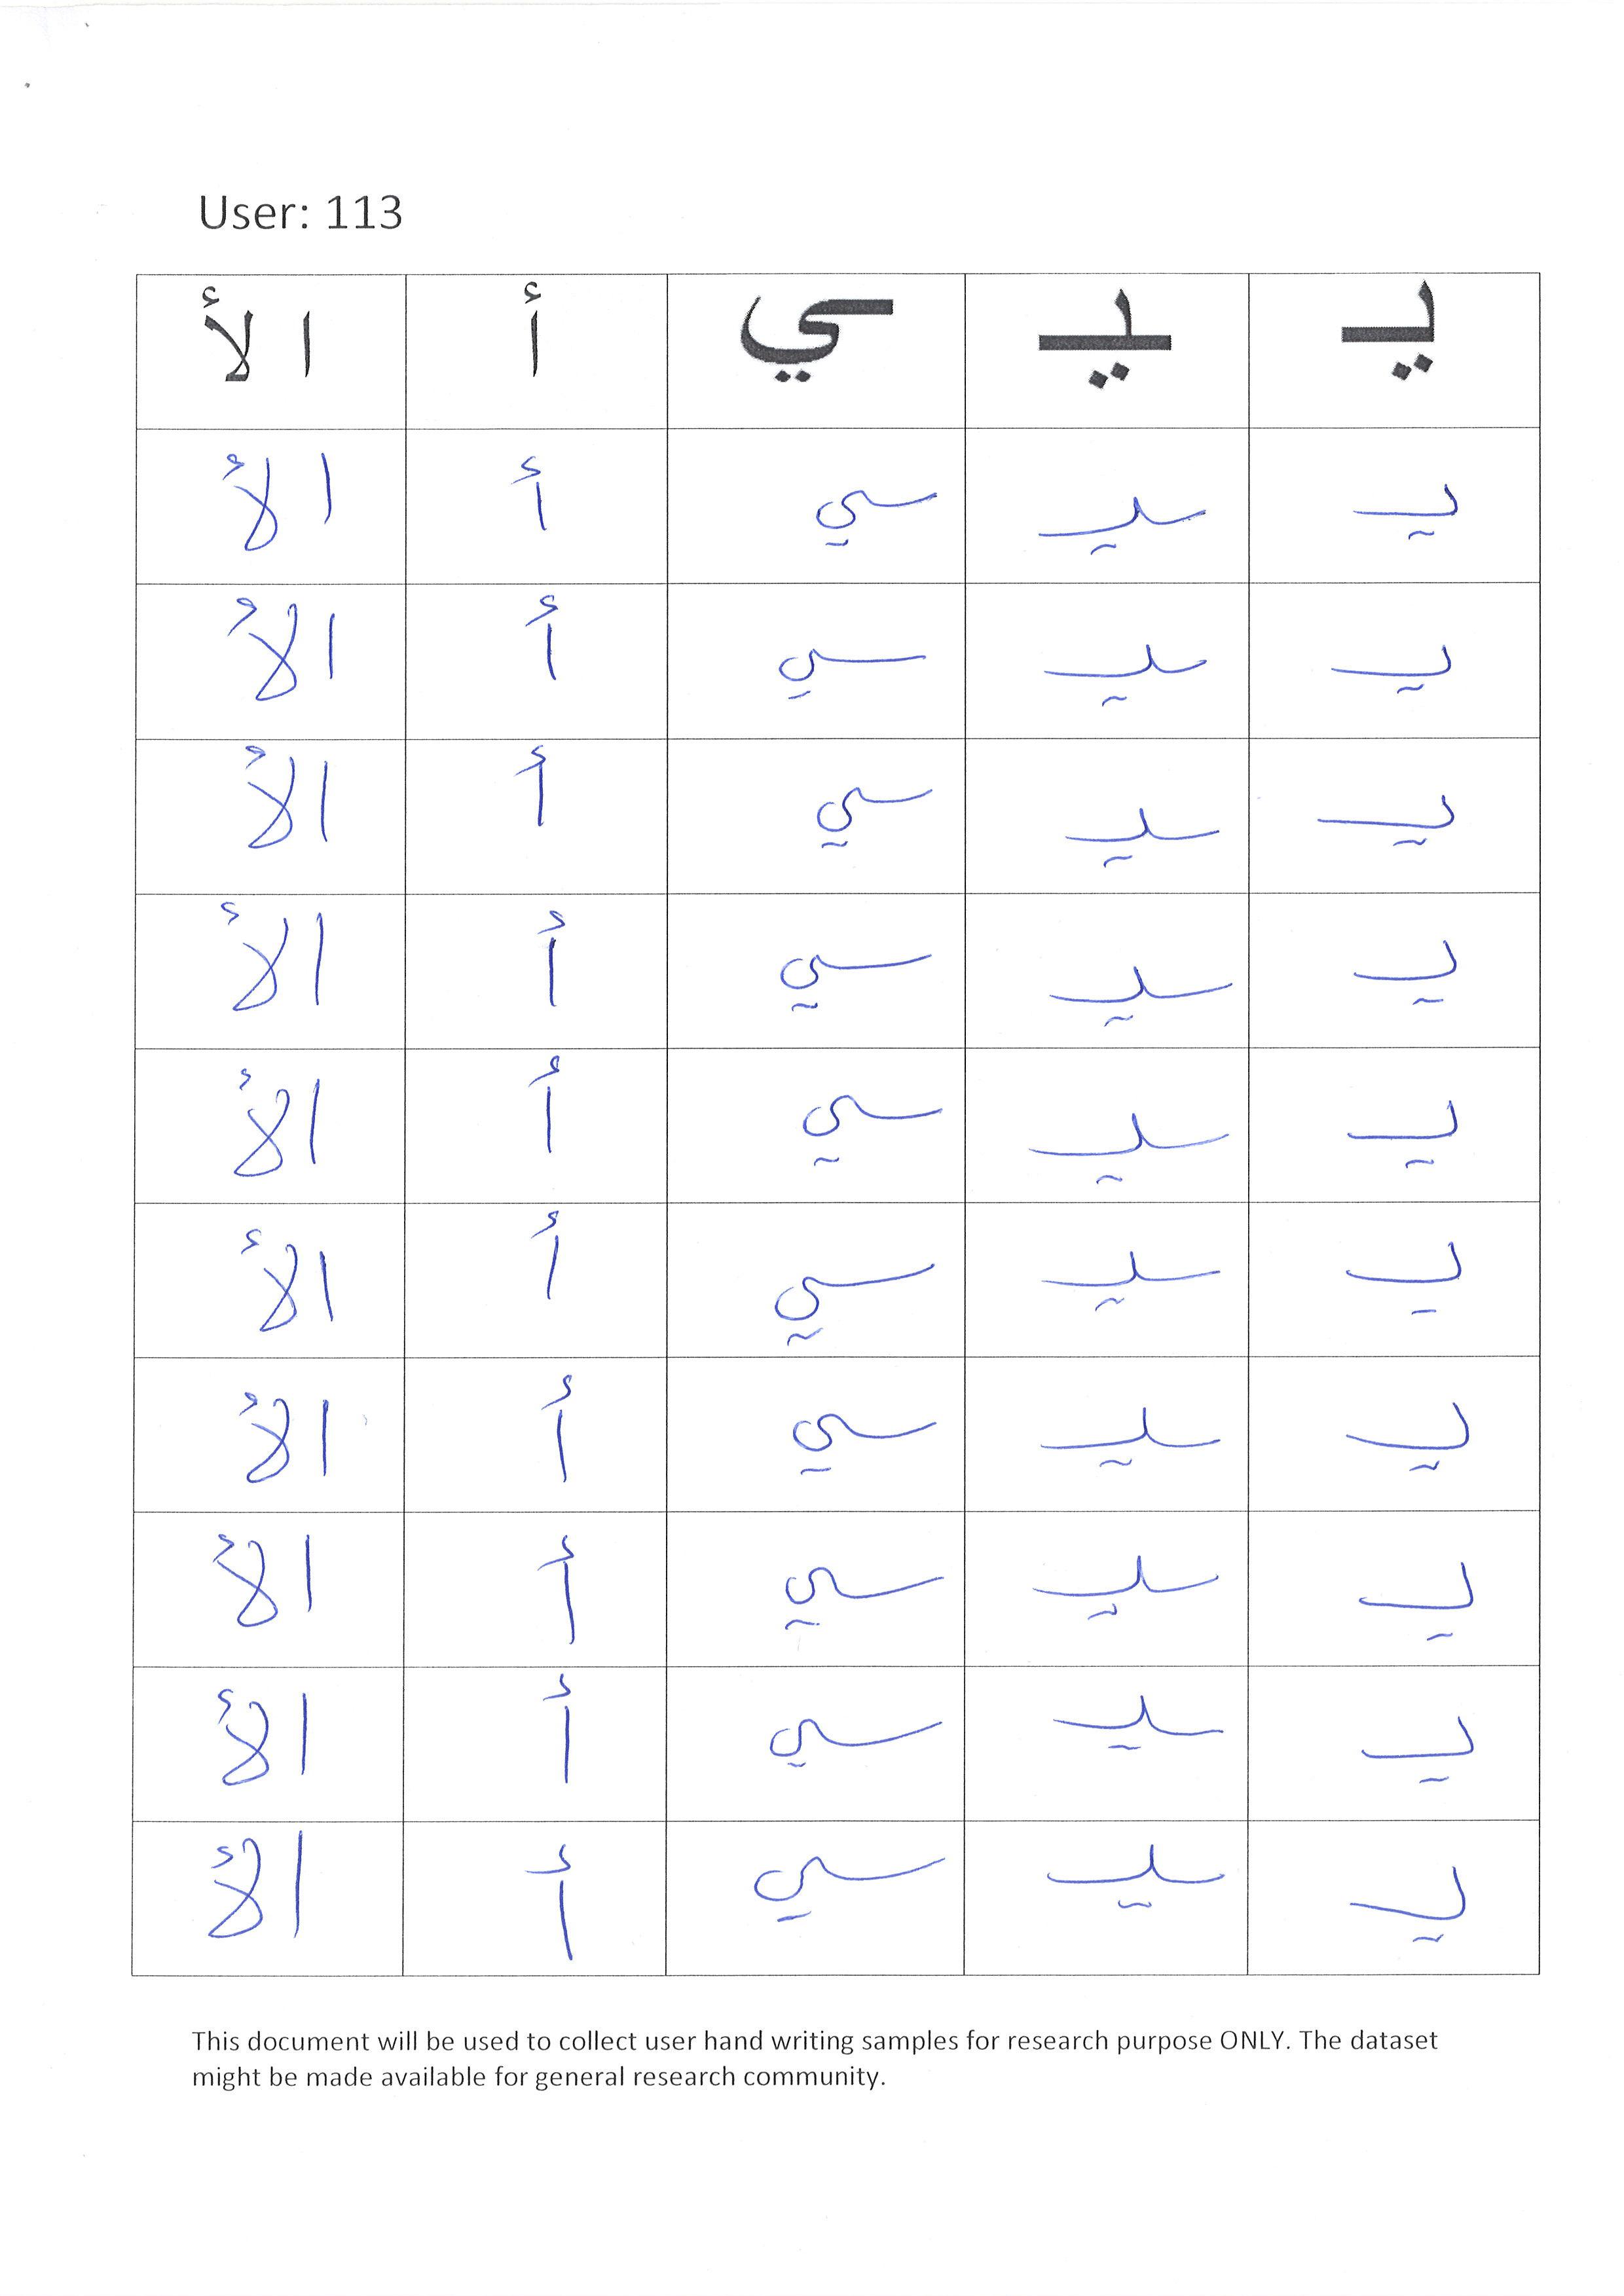 User: 113
يـ ـيـ ـي أ ا لأ
يـ ـيـ ـي أ ا لأ
يـ ـيـ ـي أ ا لأ
يـ ـيـ ـي أ ا لأ
يـ ـيـ ـي أ ا لأ
يـ ـيـ ـي أ ا لأ
يـ ـيـ ـي أ ا لأ
يـ ـيـ ـي أ ا لأ
يـ ـيـ ـي أ ا لأ
يـ ـيـ ـي أ ا لأ
يـ ـيـ ـي أ ا لأ
This document will be used to collect user hand writing samples for research purpose ONLY. The dataset
might be made available for general research community.